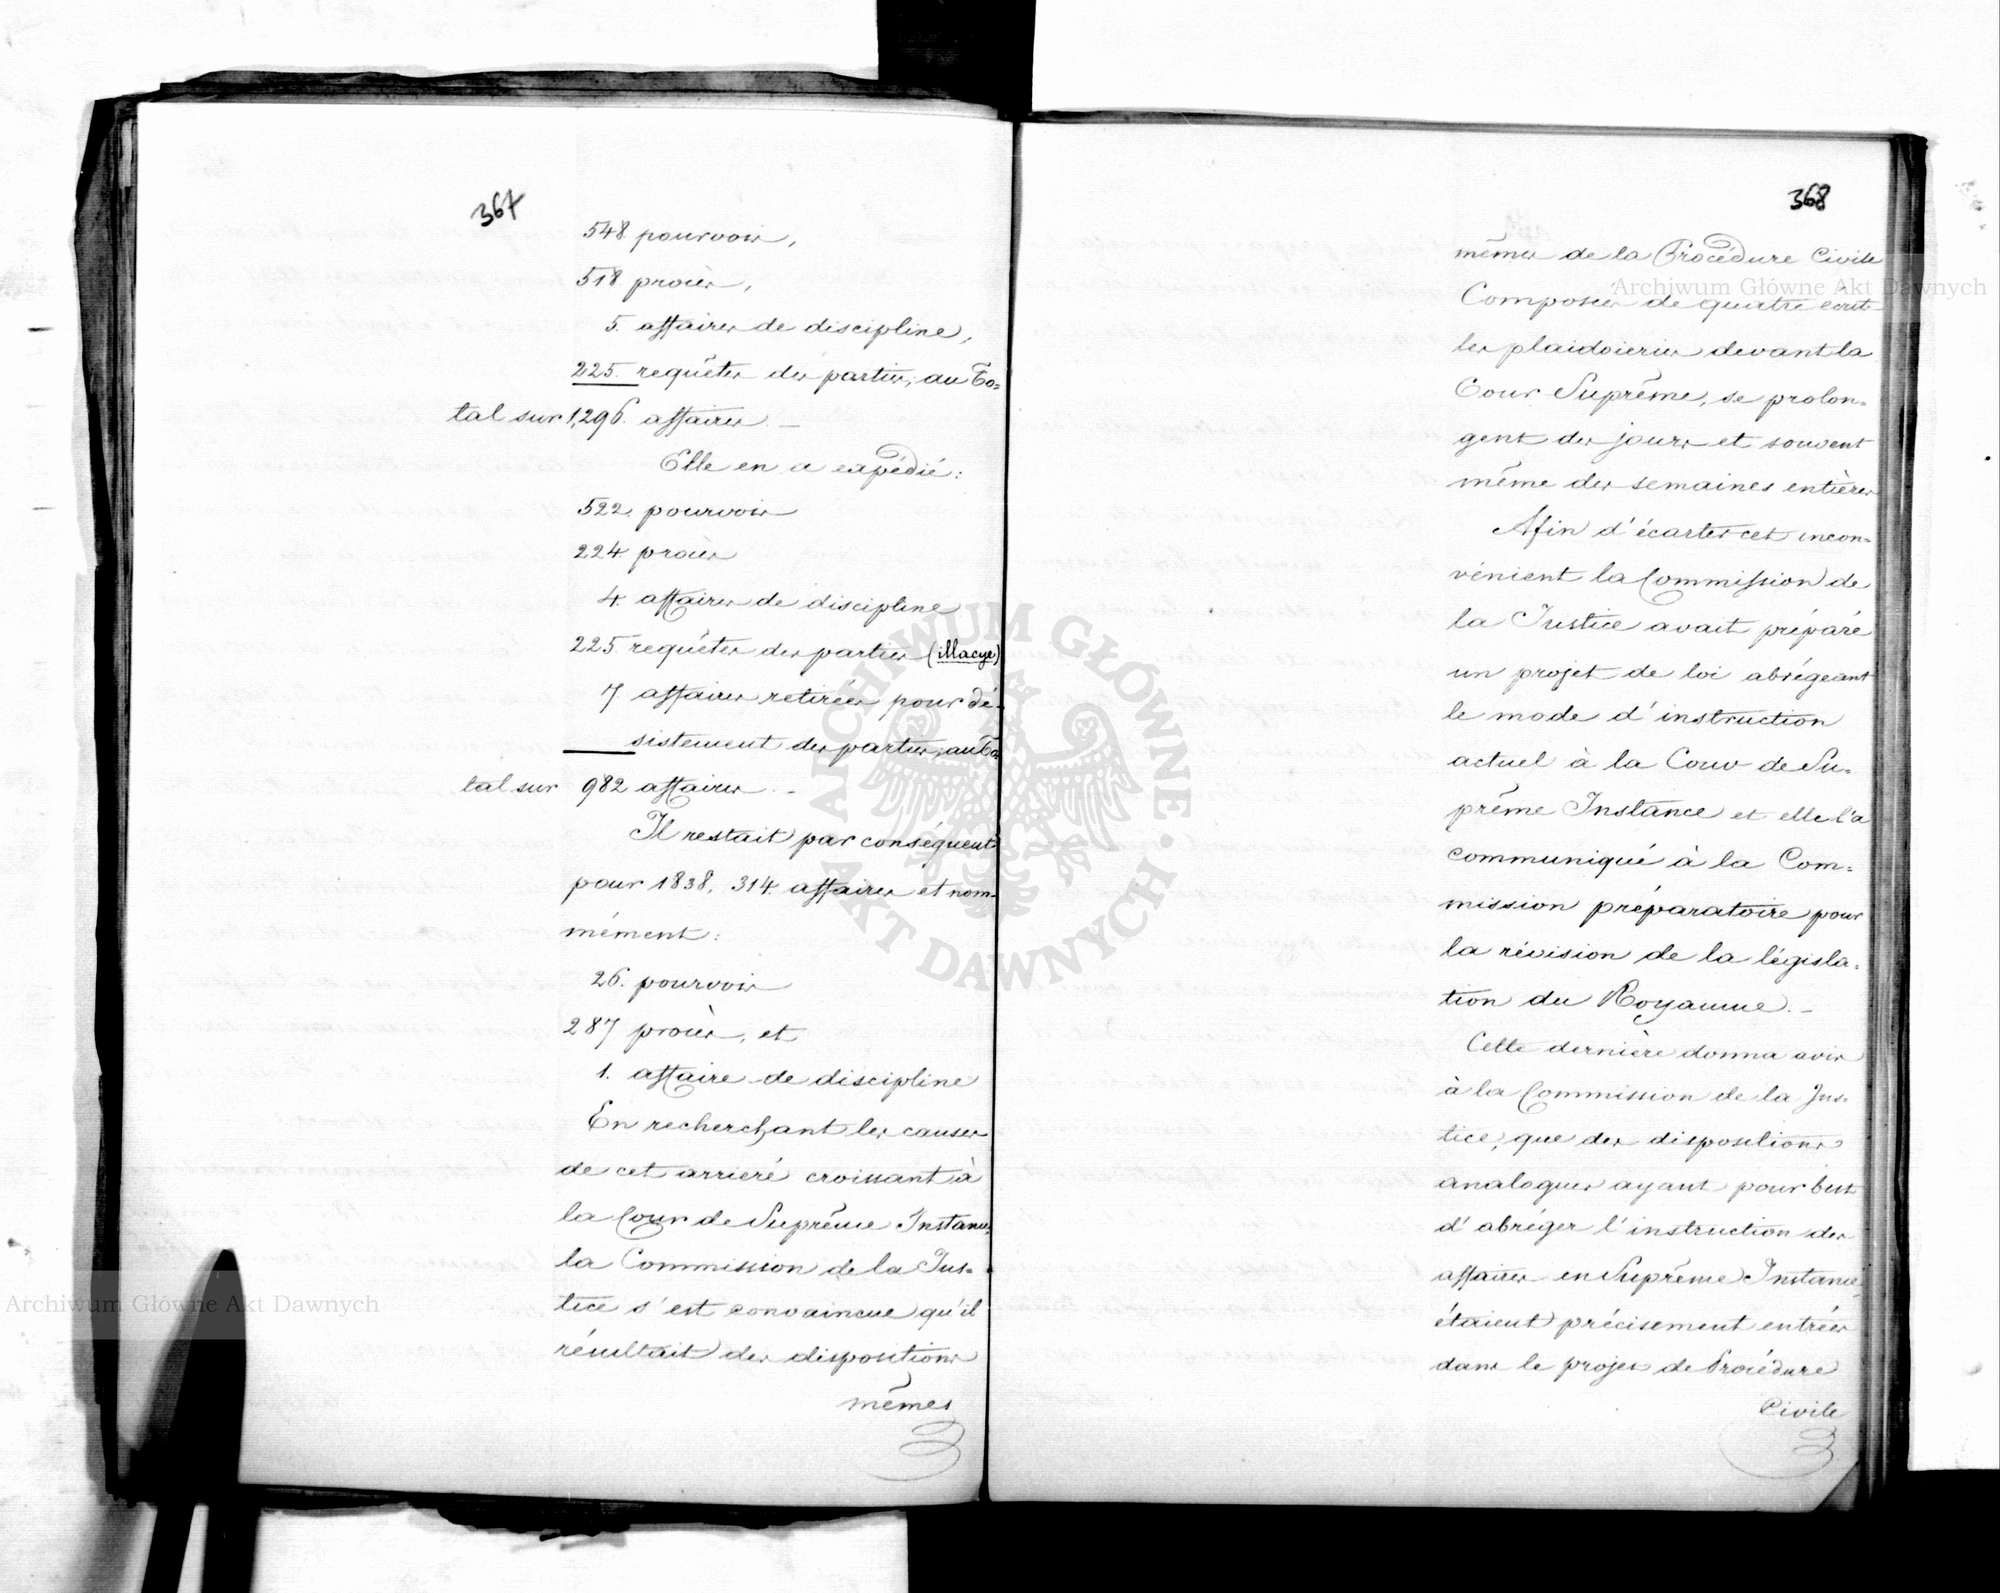 367
548 pourvois,
518 procès,
5. affaires de discipline,
225. requêtes des parties; au To=
tal sur 1,296. affaires. –
Elle en a expédié:
522. pourvois
224. procès
4. affaires de discipline
225 requêtes des parties (illacye)
7. affaires retirées pour dé-
sistement des parties; au To
tal sur 982 affaires. –
Il restait par conséquent
pour 1838, 314. affaires et nom-
mément:
26. pourvois
287 procès, et
1. affaire de discipline
En recherchant les causes
de cet arrieré croissant à
la Cour de Suprême Instance,
la Commission de la Jus-
tice s'est convaincue qu'il
résultait des dispositions
mêmes
368
mêmes de la Procédure Civile
Composées de quatre
les plaidoieries devant la
Cour Suprême, se prolon=
gent des jours et souvent
même des semaines entières
Afin d'écarter cet incon=
vénient la Commission de
la Justice avait préparé
un projet de loi abrégeant
le mode d'instruction
actuel à la Cour de Su=
prême Instance et elle l'a
communiqué à la Com=
mission préparatoire pour
la révision de la législa=
tion du Royaume. –
Cette dernière donna avis
à la Commission de la Jus-
tice, que des dispositions
analogues ayant pour but
d'abréger l'instruction des
affaires en Suprême Instance,
étaient précisement entrées
dans le projet de Procédure
Civile
Archiwum Główne Akt Dawnych
Archiwum Główne Akt Dawnych
ARCHIWUM GŁÓWNE · AKT DAWNYCH ·